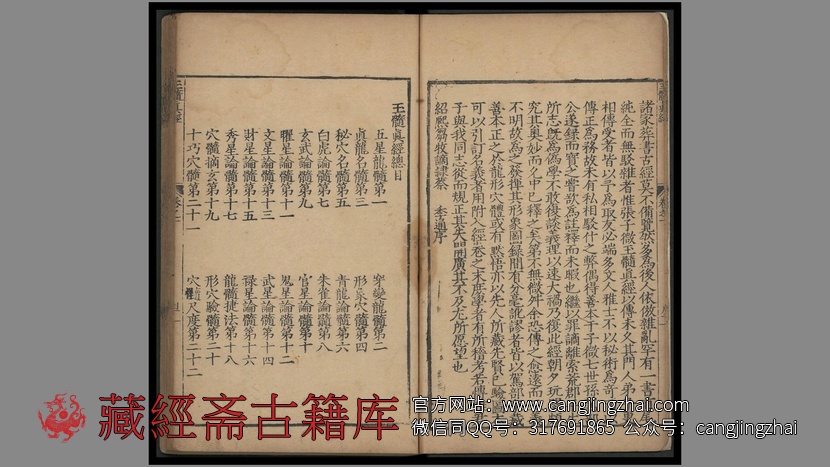 諸家葬書古經莫不備覽然多為後人依倣雜亂罕有一書
純全而無駁雜者惟張子微玉髓真經以傳未久其門人弟
相傳受者皆以予為取友必端多文人雅士不以秘術為奇
傳正為務故未有私相駁什之弊偶得善本于子微七世孫
公遂録而寳之嘗欲為註釋而未暇也繼以罪謫離索荒郡
所志既為偽學不敢復談義理以速大禍乃復此經朝夕玩
究其奥妙而夕中已釋之矣第不無微舛余恐傳之愈遠而
不明故為之發揮其形象圖録間有分毫訛謬者皆以駕部
善本正之於龍形穴體或有默悟亦以先人所藏先賢已驗圖
可以引訂名義者用附入經卷之末庶學者有所稽考若博
于與我同志從而規正其失開廣其不及尤所愿望也
紹熈
李 序
玉髓真經總目
五星龍髓第一
穿變龍髓第二
真龍名髓第三
形象穴髓第四
秘穴名髓第五
青龍論髓第六
白虎論髓第七
朱雀論髓第八
玄武論髓第九
官星論髓第十
曜星論髓第十一
鬼星論髓第十二
文星論髓第十三
武星論髓第十四
財星論髓第十五
禄星論髓第十六
秀星論髓第十七
龍髓捷法第十八
穴髓摘玄第十九
形穴驗髓第二十
十巧穴髓第二十一
穴髓尺度第二十二
藏經斋古籍库
官方网站：www.cangjingzhai.com
微信同QQ号：317691865 公众号：cangjingzhai